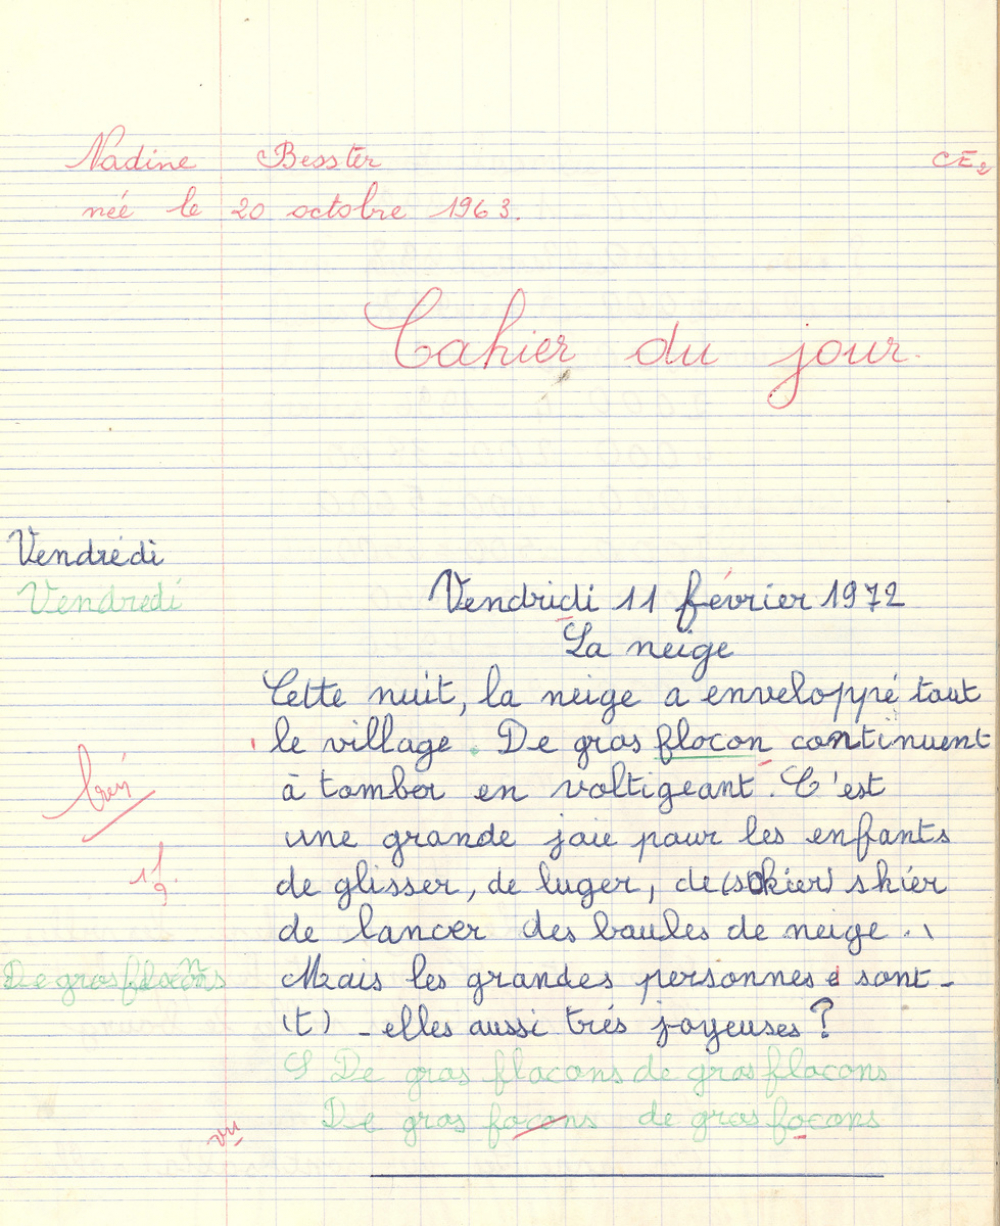 Nadine Besster CE2
née le 20 octobre 1963.
Cahier du jour.
Vendredi
Vendredi
Vendridi 11 février 1972
La neige
Cette nuit, la neige a enveloppé tout
le village. De gros flocon continuent
à tomber en voltigeant. C'est
une grande joie pour les enfants
de glisser, de luger, de (sokier) skier
de lancer des boules de neige.
Mais les grandes personnes sont-
(t) -elles aussi trés joyeuses?
De gros flocons
De gros flocons de gros flocons
De gros focons de gros focons
vu